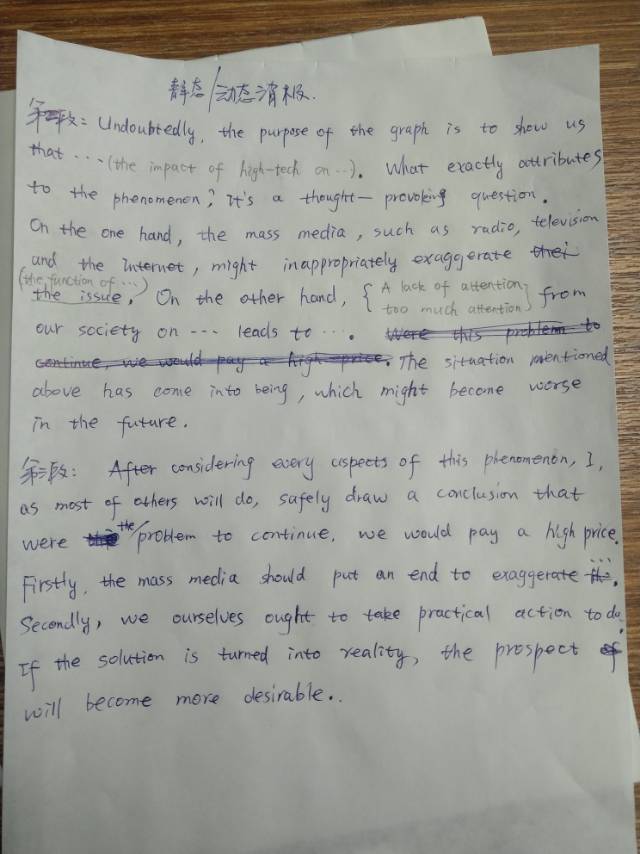 静态/动态消极.
第二段: Undoubtedly, the purpose of the graph is to show us
that ... (the impact of high-tech on ...). What exactly attributes
to the phenomenon? It's a thought-provoking question.
On the one hand, the mass media, such as radio, television
and the internet, might inappropriately exaggerate their
(the function of ...)
the issue. On the other hand, { A lack of attention
too much attention } from
our society on ... leads to .... Were this problem to
continue, we would pay a high price. The situation mentioned
above has come into being, which might become worse
in the future.
第三段: After considering every aspects of this phenomenon, I,
as most of others will do, safely draw a conclusion that
were the problem to continue, we would pay a high price.
Firstly, the mass media should put an end to exaggerate ...
Secondly, we ourselves ought to take practical action to do.
If the solution is turned into reality, the prospect of
will become more desirable..